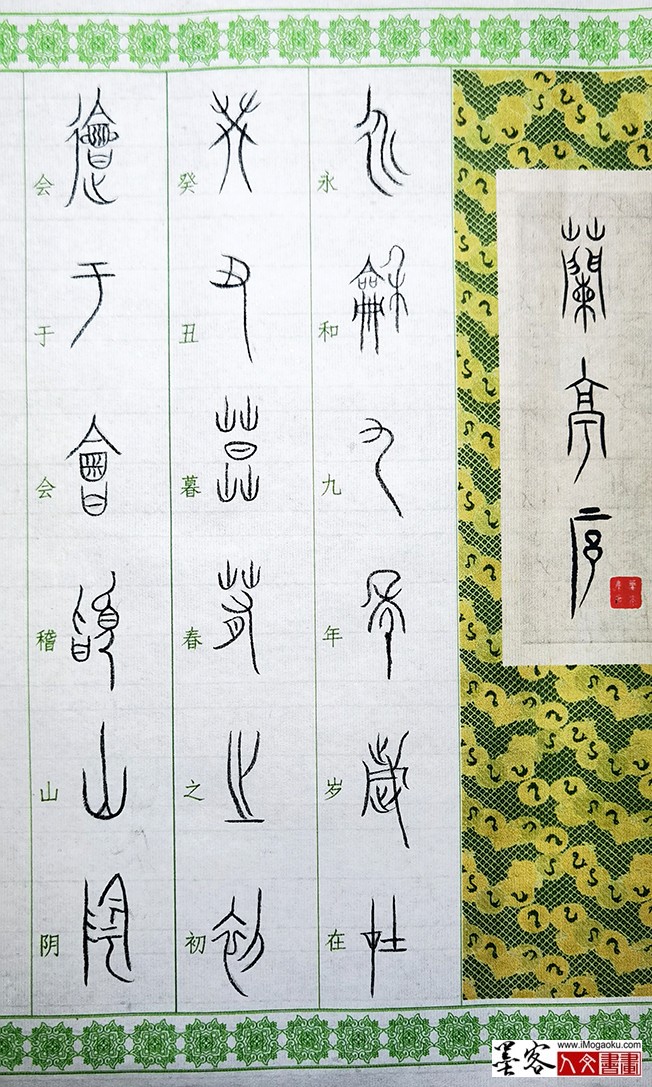 蘭亭序
永和九年岁在
癸丑暮春之初
会于会稽山阴
墨客
www.iMogaoku.com
人文書畫